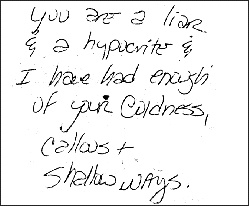 you are a liar
& a hypocrite &
I have had enough
of your Coldness,
callous +
shallow ways.